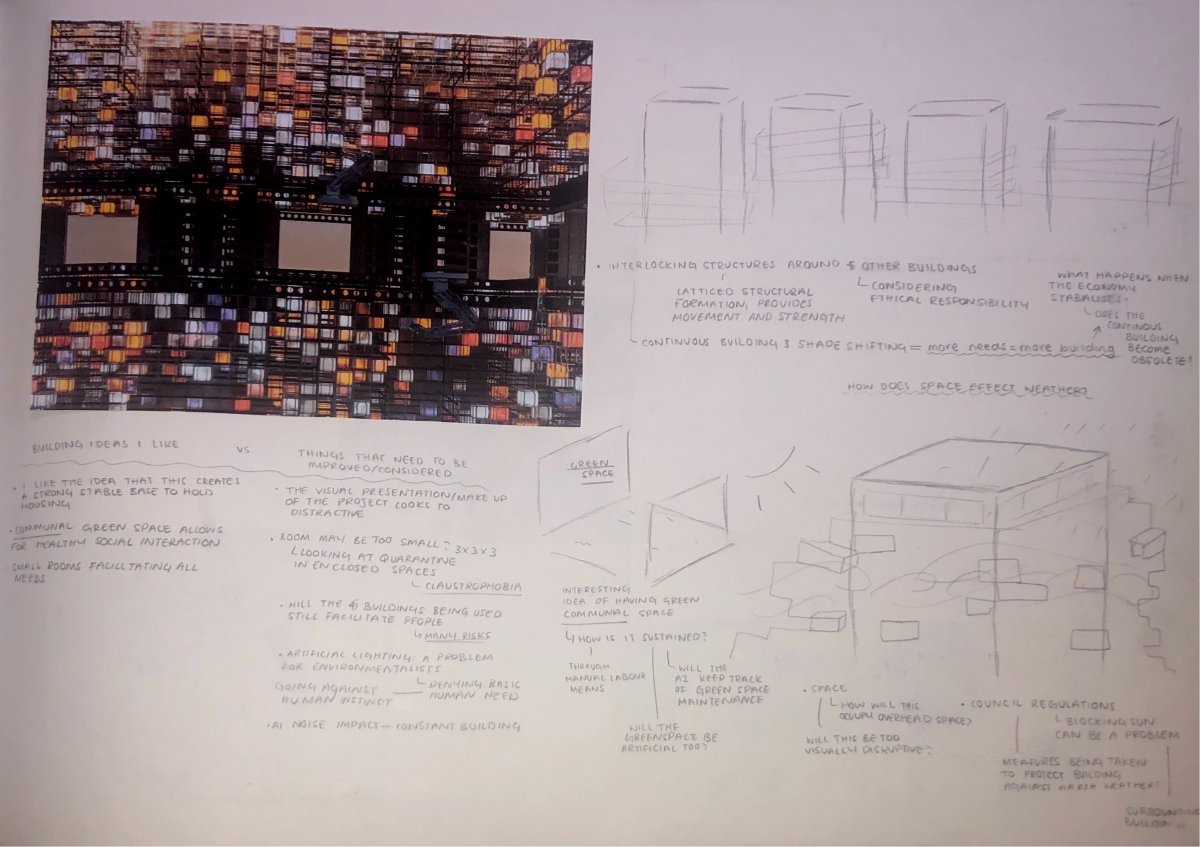 • INTERLOCKING STRUCTURES AROUND 5 OTHER BUILDINGS
LATTICED STRUCTURAL
FORMATION, PROVIDES
MOVEMENT AND STRENGTH
CONSIDERING
ETHICAL RESPONSIBILITY
CONTINUOUS BUILDING & SHADE SHIFTING = more needs = more building
WHAT HAPPENS WHEN
THE ECONOMY
STABALISES.
DOES THE
CONTINOUS
BUILDING
BECOME
OBSOLETE!
HOW DOES SPACE EFFECT WEATHER?
BUILDING IDEAS I LIKE
VS
THINGS THAT NEED TO BE
IMPROVED/CONSIDERED
• I LIKE THE IDEA THAT THIS CREATES
A STRONG STABLE BASE TO HOLD
HOUSING
• COMMUNAL GREEN SPACE ALLOWS
FOR HEALTHY SOCIAL INTERACTION
• SMALL ROOMS FACILITATING ALL
NEEDS
• THE VISUAL PRESENTATION/MAKE UP
OF THE PROJECT LOOKS TO
DISTRACTIVE
• ROOM MAY BE TOO SMALL? 3×3×3
LOOKING AT QUARANTINE
IN ENCLOSED SPACES
CLAUSTROPHOBIA
• WILL THE 5 BUILDINGS BEING USED
STILL FACILITATE PEOPLE
MANY RISKS
• ARTIFICIAL LIGHTING: A PROBLEM
FOR ENVIRONMENTALISTS
DENYING BASIC
HUMAN NEED
GOING AGAINST
HUMAN INSTINCT
• AI NOISE IMPACT - CONSTANT BUILDING
GREEN
SPACE
INTERESTING
IDEA OF HAVING GREEN
COMMUNAL SPACE
HOW IS IT SUSTAINED?
THROUGH
MANUAL LABOUR
MEANS
WILL THE
AI KEEP TRACK
OF GREEN SPACE
MAINTENANCE
WILL THE
GREENSPACE BE
ARTIFICIAL TOO?
• SPACE
HOW WILL THIS
OCCUPY OVERHEAD SPACE?
WILL THIS BE TOO
VISUALLY DISRUPTIVE?
• COUNCIL REGULATIONS
BLOCKING SUN
CAN BE A PROBLEM
MEASURES BEING TAKEN
TO PROTECT BUILDING
AGAINST HARSH WEATHER?
SURROUNDING
BUILDINGS